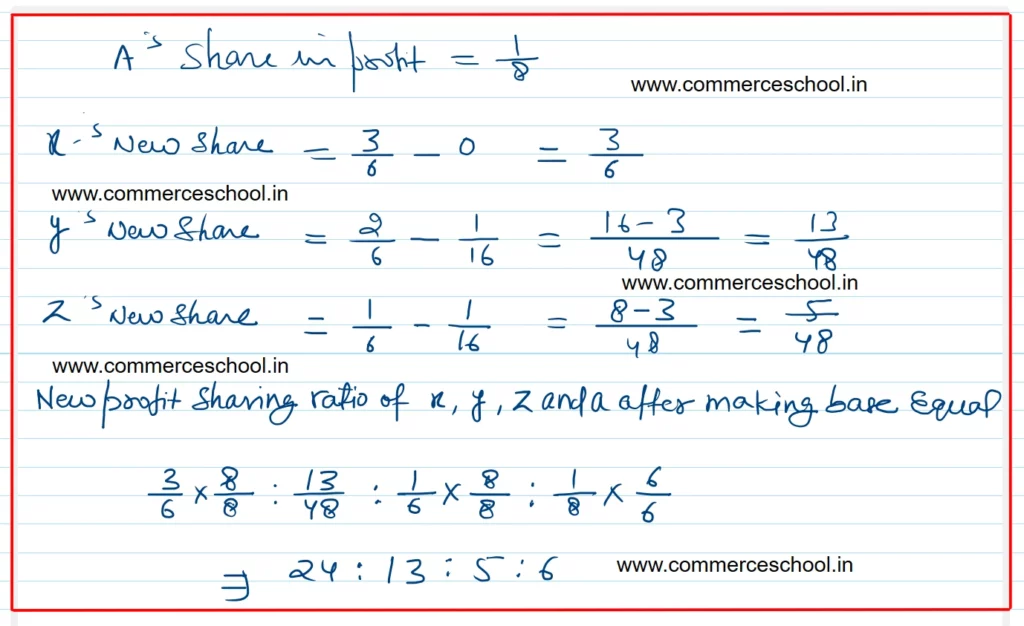 A's Share in profit = 1/8
www.commerceschool.in
x's New Share = 3/6 - 0 = 3/6
www.commerceschool.in
y's New Share = 2/6 - 1/16 = 16-3/48 = 13/48
www.commerceschool.in
Z's New Share = 1/6 - 1/16 = 8-3/48 = 5/48
www.commerceschool.in
New profit Sharing ratio of x, y, Z and a after making base Equal
3/6 × 8/8 : 13/48 : 1/6 × 8/8 : 1/8 × 6/6
⇒ 24 : 13 : 5 : 6
www.commerceschool.in